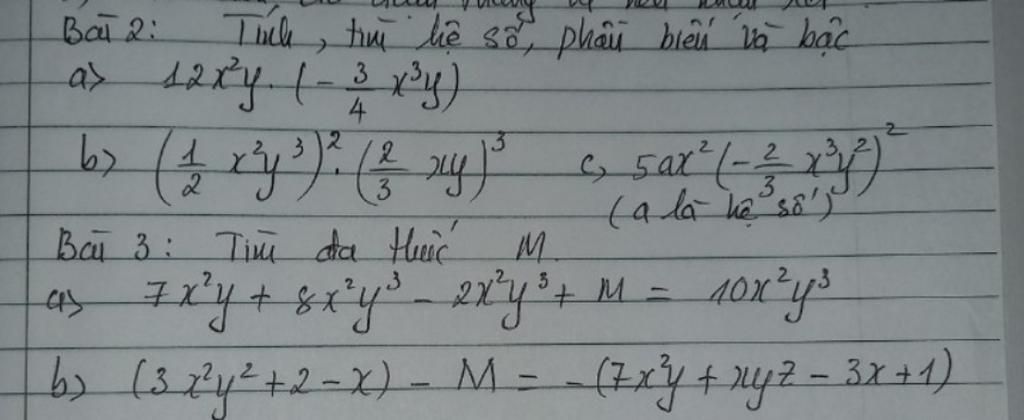 Bài 2: Tính, tìm hệ số, phần biến và bậc
a> 12x²y.(-3/4 x³y)
b> (1/2 x²y³)².(2/3 xy)³ c, 5ax²(-2/3 x³y²)²
(a là hệ số)
Bài 3: Tìm đa thức M.
a> 7x²y + 8x²y³ - 2x²y³ + M = 10x²y³
b> (3x²y² + 2 - x) - M = -(7x²y + xyz - 3x + 1)